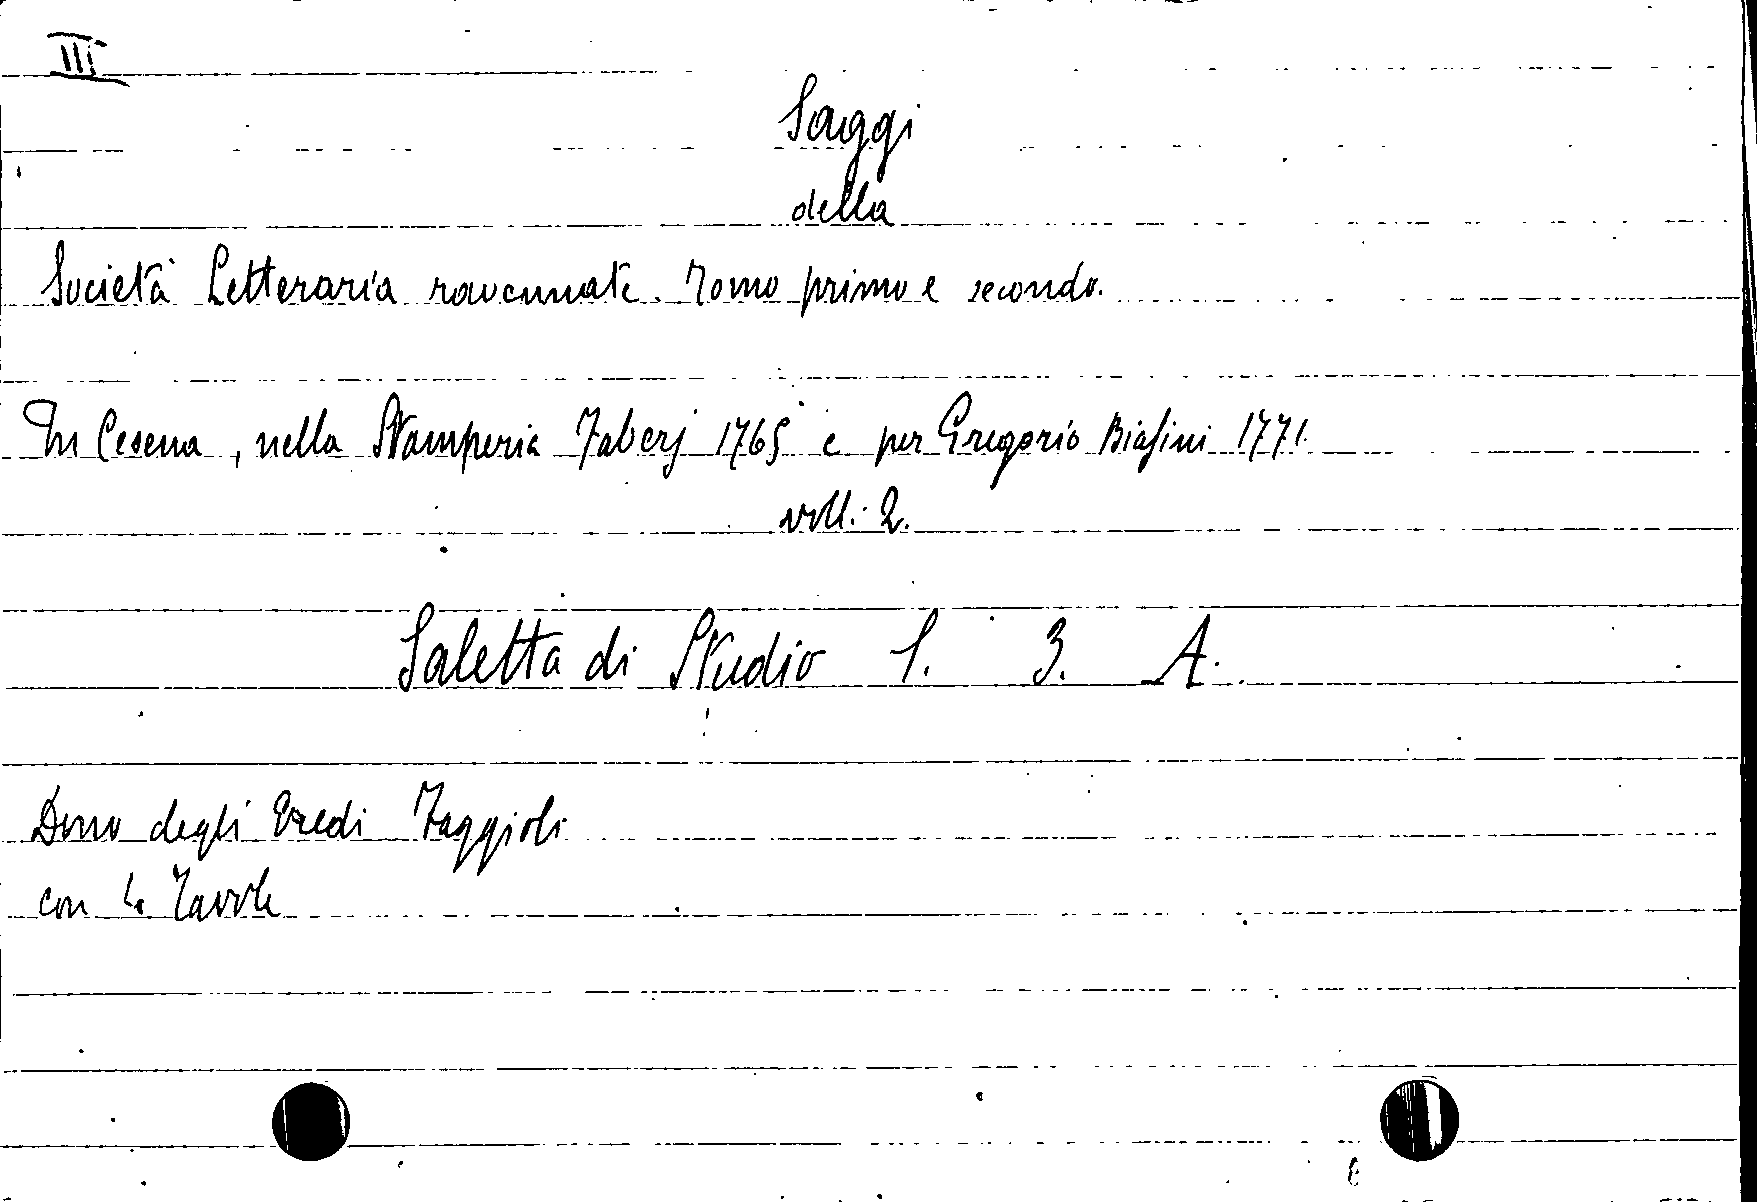 III
Saggi
della
Società Letteraria ravennate. Tomo primo e secondo.
In Cesena, nella Stamperia Faberj 1765 e per Gregorio Biasini 1771.
voll. 2.
Saletta di Studio 1. 3. A.
Dono degli Eredi Faggioli
con le Tavole